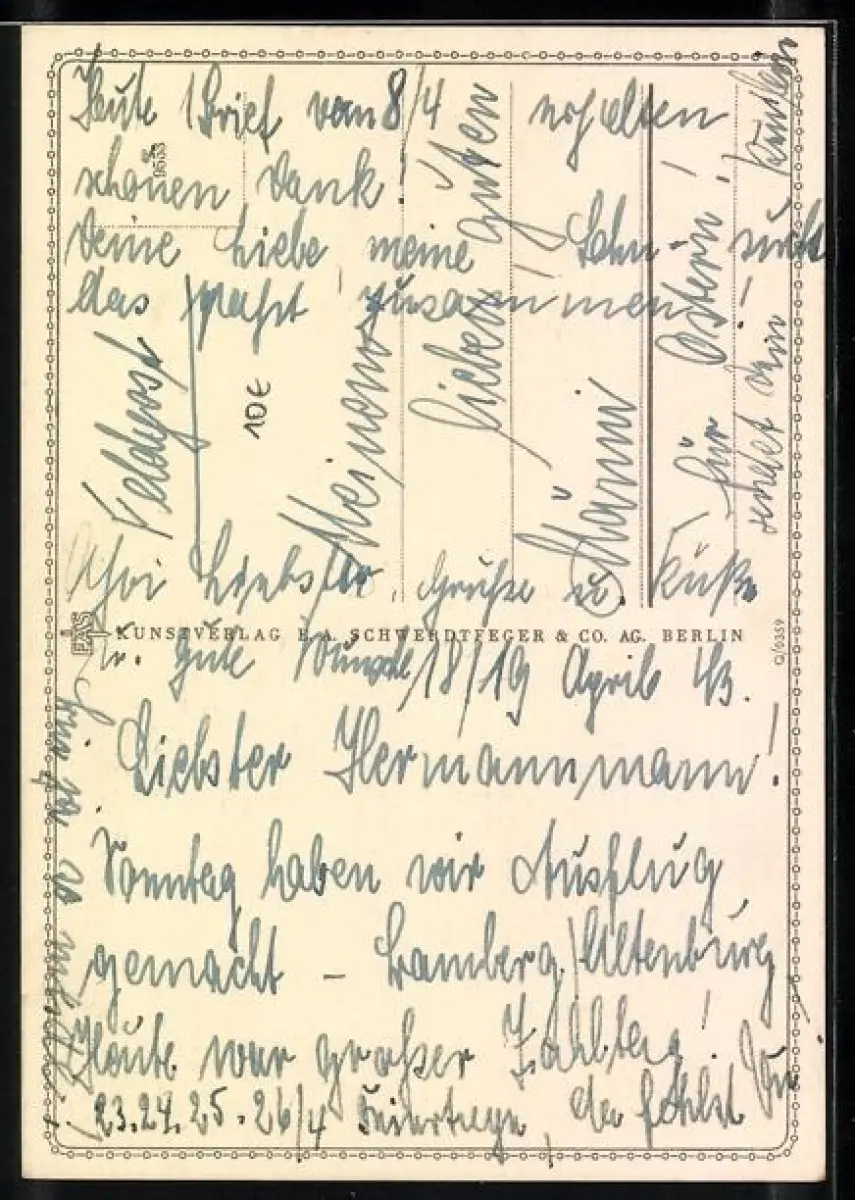 Heute 1 Brief vom 8/4 erhalten
schönen Dank!
Deine Liebe meine Sehn- sucht
das paßt zusammen!
Feldpost
10€
Meinem
lieben guten
Männi
für Ostern!
sendet dein
9553
Liebster, Grüße u. Küße
FAS KUNSTVERLAG E. A. SCHWERDTFEGER & CO. AG. BERLIN
Q/0359
u. gute Wünsche 18/19 April 43.
Liebster Hermannmann!
Sonntag haben wir Ausflug
gemacht – Bamberg/Altenburg
Heute war großer Zahltag!
23.24.25.26/4 Feiertage, da fehlst Du